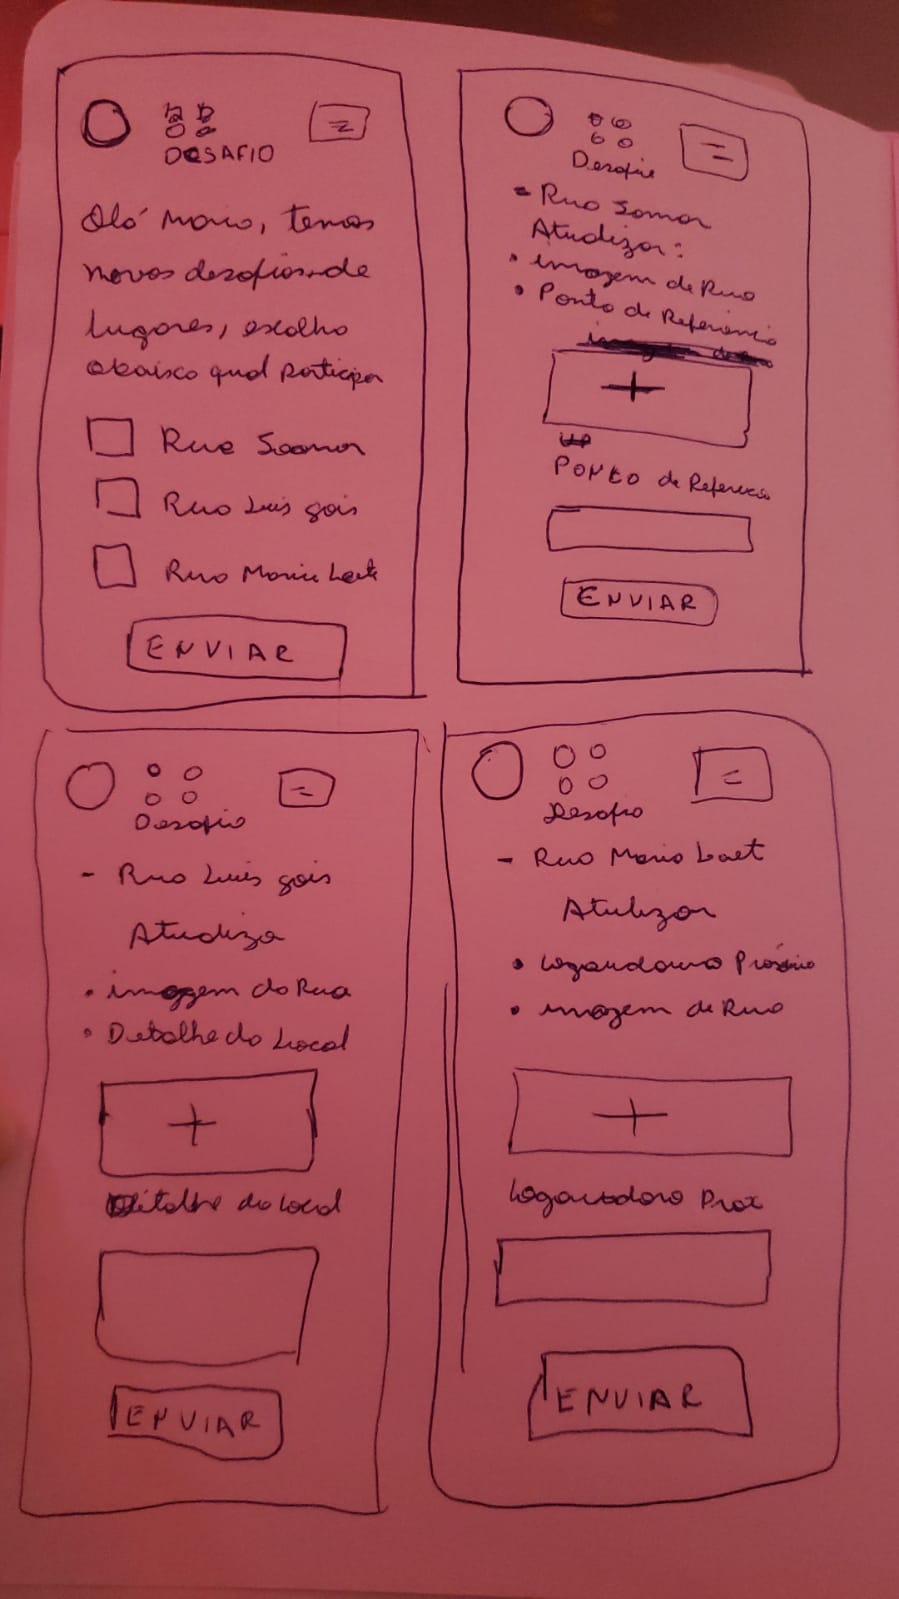 DESAFIO
Olá Mario, temos
novos desafios de
lugares, escolha
abaixo qual participar
Rua Soomor
Rua Luis gois
Rua Maria Laet
ENVIAR
Desafio
- Rua Somor
Atualizar:
• imagem da Rua
• Ponto de Referência
+
Ponto de Referencia
ENVIAR
Desafio
- Rua Luis gois
Atualiza
• imagem da Rua
• Detalhe do Local
+
Detalhe do Local
ENVIAR
Desafio
- Rua Mario Laet
Atulizar
• Próximo
• imagem da Rua
+
Prox
ENVIAR